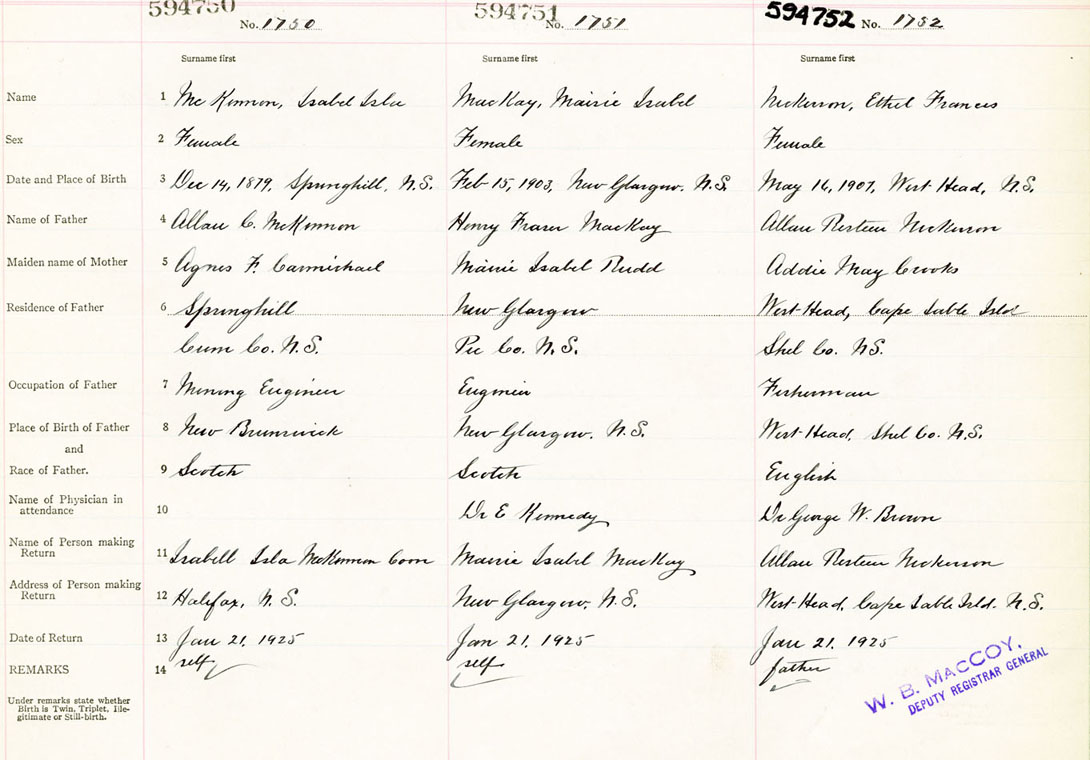 594750 No. 1750 594751 No. 1751 594752 No. 1752
Surname first Surname first Surname first
Name 1 McKinnon, Isabel Isla MacKay, Mairie Isabel Nickerson, Ethel Frances
Sex 2 Female Female Female
Date and Place of Birth 3 Dec 14, 1879, Springhill, N.S. Feb 15, 1903, New Glasgow, N.S. May 16, 1907, West Head, N.S.
Name of Father 4 Allan C. McKinnon Henry Fraser MacKay Allan Nickerson
Maiden name of Mother 5 Agnes F. Carmichael Mairie Isabel Rudd Addie May Crooks
Residence of Father 6 Springhill New Glasgow West Head, Cape Sable Isld
Cum Co. N.S. Pic Co. N.S. Shel Co. N.S.
Occupation of Father 7 Mining Engineer Engineer Fisherman
Place of Birth of Father 8 New Brunswick New Glasgow, N.S. West Head, Shel Co. N.S.
and
Race of Father. 9 Scotch Scotch English
Name of Physician in
attendance 10 Dr E Kennedy Dr George W. Brown
Name of Person making
Return 11 Isabell Isla McKinnon Mairie Isabel MacKay Allan Nickerson
Address of Person making
Return 12 Halifax, N.S. New Glasgow, N.S. West Head, Cape Sable Isld. N.S.
Date of Return 13 Jan 21, 1925 Jan 21, 1925 Jan 21, 1925
REMARKS 14 self self father
W. B. MACCOY,
DEPUTY REGISTRAR GENERAL
Under remarks state whether
Birth is Twin, Triplet, Ille-
gitimate or Still-birth.